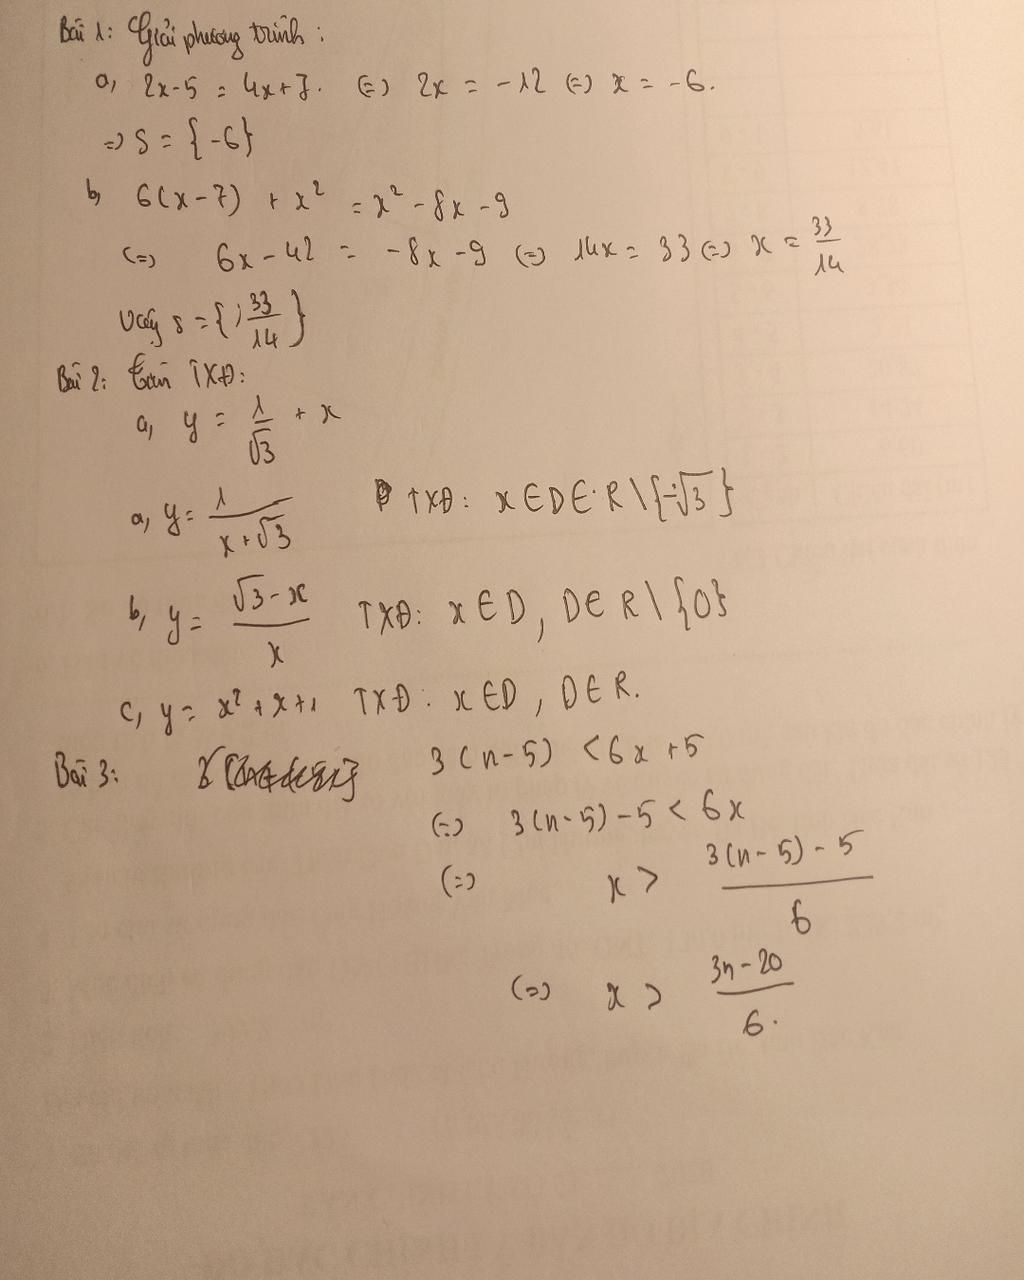 Bài 1: Giải phương trình:
a, 2x-5 = 4x+7. (=) 2x = -12 (=) x = -6.
=) S = {-6}
b, 6(x-7) + x² = x² - 8x - 9
(=) 6x - 42 = -8x - 9 (=) 14x = 33 (=) x = 33/14
Vậy S = {33/14}
Bài 2: Tìm TXĐ:
a, y = 1/√3 + x
a, y = 1/(x+√3) TXĐ: x ∈ D ∈ R \ {-√3}
b, y = (√3-x)/x TXĐ: x ∈ D, D ∈ R \ {0}
c, y = x² + x + 1 TXĐ: x ∈ D, D ∈ R.
Bài 3: 3(n-5) < 6x + 5
(=) 3(n-5) - 5 < 6x
(=) x > (3(n-5) - 5)/6
(=) x > (3n-20)/6.